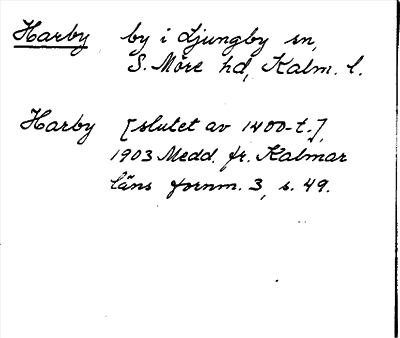 Harby by i Ljungby sn,
S. Möre hd, Kalm. l.
Harby [slutet av 1400-t.],
1903 Medd. fr. Kalmar
läns fornm. 3, s. 49.